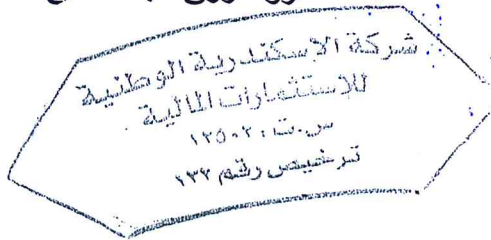 شركة الاسكندرية الوطنية
للاستثمارات المالية
س.ت: ١٢٥٠٢
ترخيص رقم ١٣٢